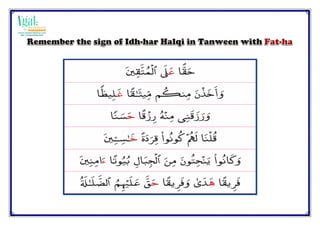 Remember the sign of Idh-har Halqi in Tanween with Fat-ha
حَقًّا عَلَى ٱلْمُتَّقِينَ
وَأَخَذْنَ مِنكُم مِّيثَـٰقًا غَلِيظًا
وَرَزَقَنِى مِنْهُ رِزْقًا حَسَنًا
قُلْنَا لَهُمْ كُونُوا۟ قِرَدَةً خَـٰسِـِٔينَ
وَكَانُوا۟ يَنْحِتُونَ مِنَ ٱلْجِبَالِ بُيُوتًا ءَامِنِينَ
فَرِيقًا هَدَىٰ وَفَرِيقًا حَقَّ عَلَيْهِمُ ٱلضَّلَـٰلَةُ